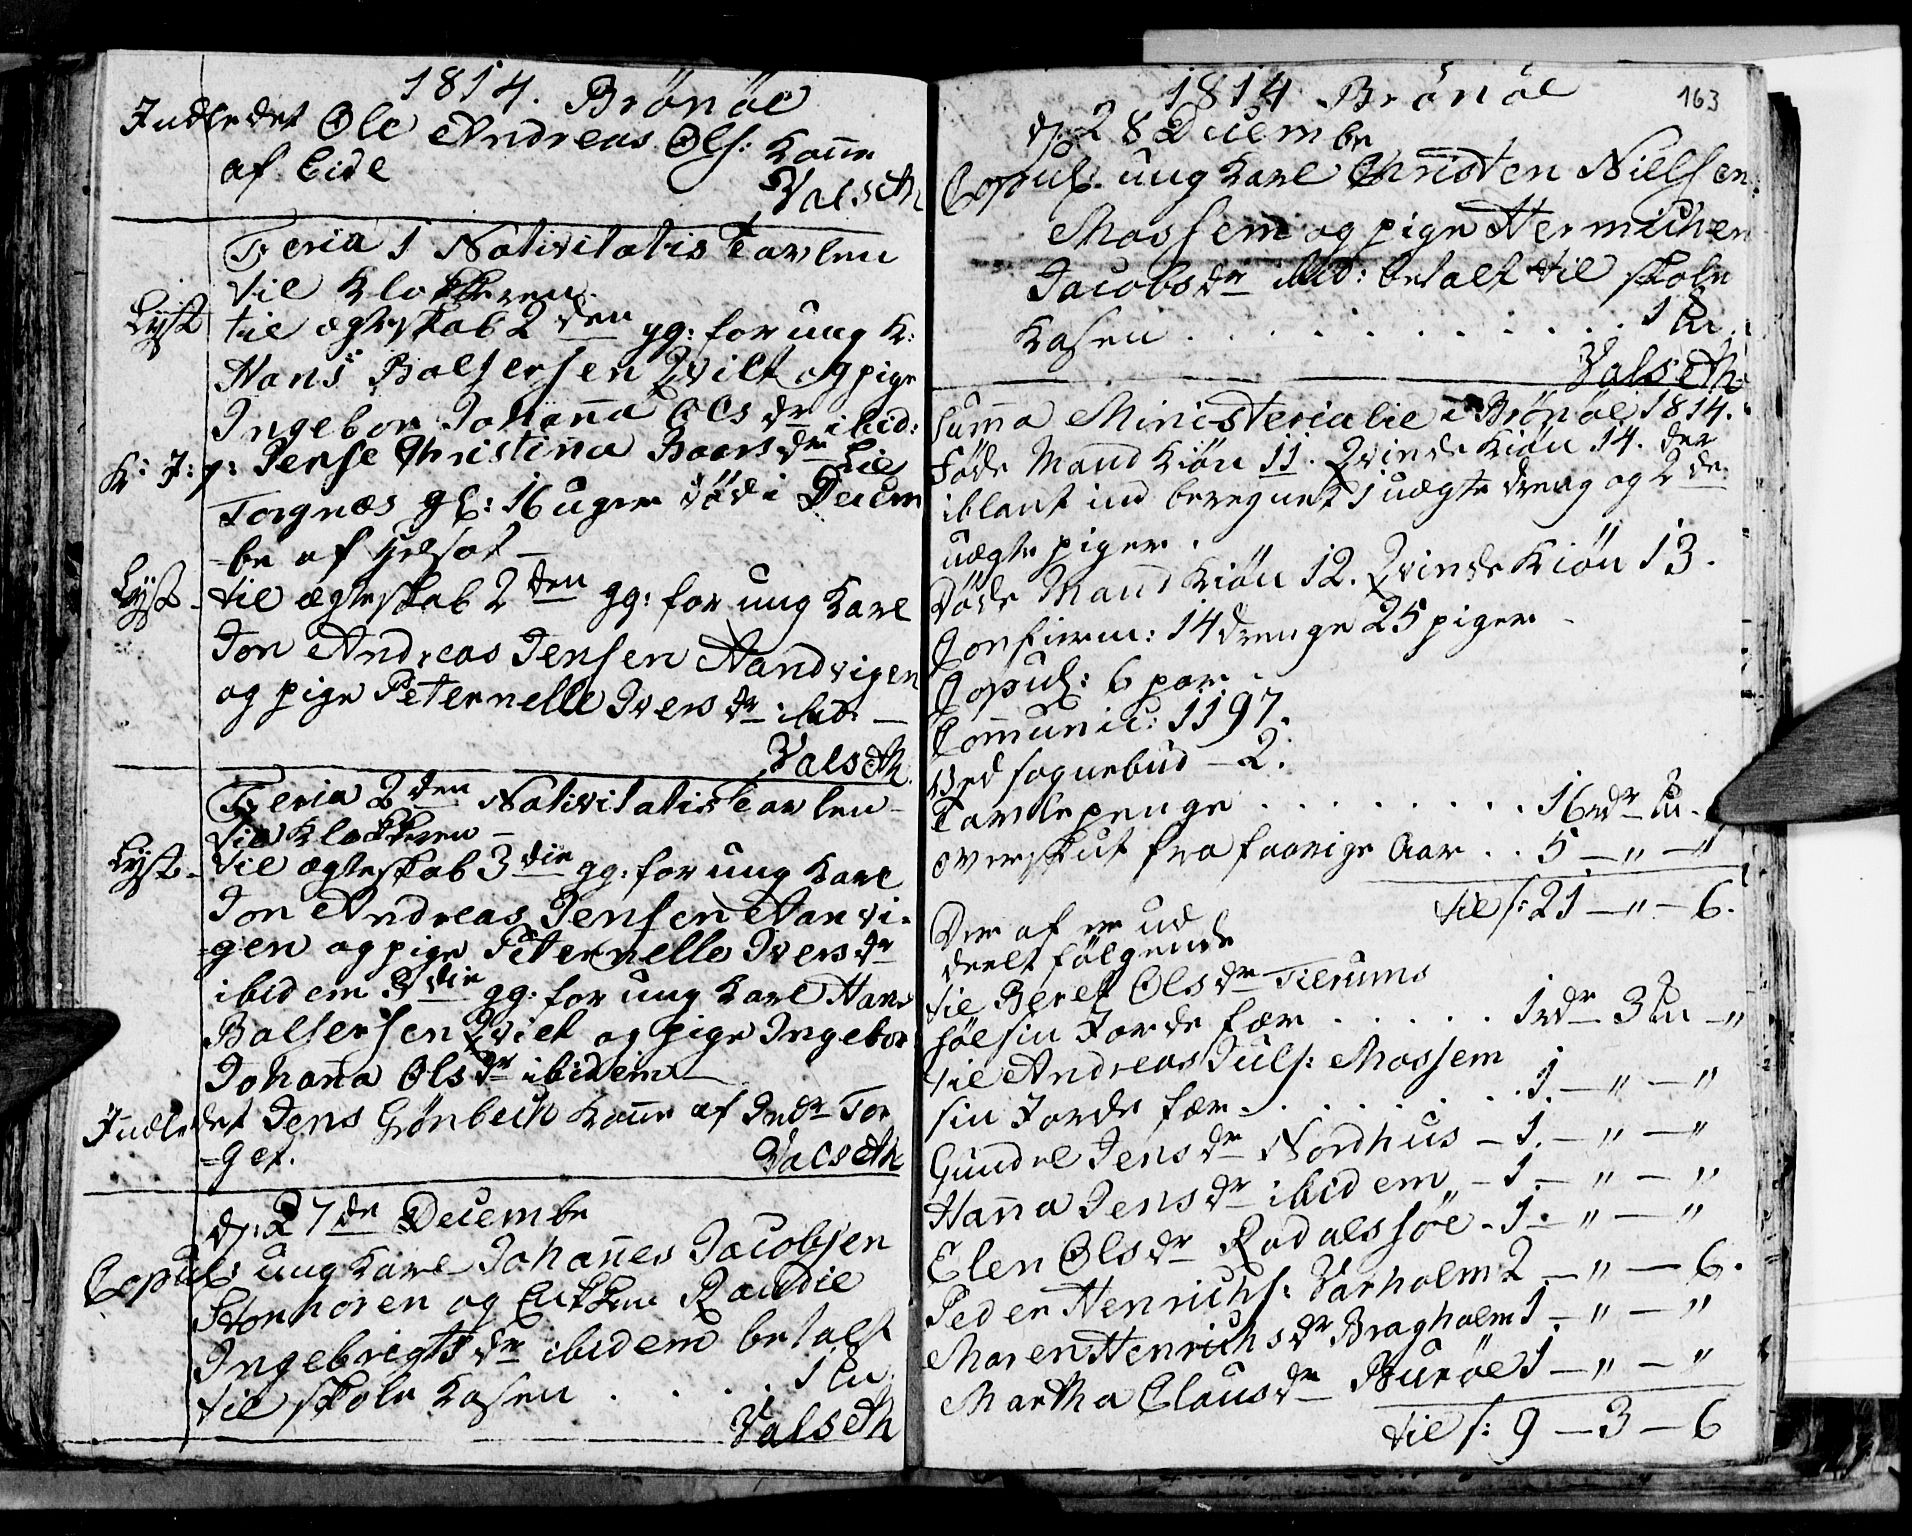 1814. Brönöe
Indledet Ole Andreas Ols: Kone
af Eide
Valseth
Feria 1 Nativitatis Tavlen
til Klokkeren.
Lyst til ægteskab 2den gg: for ung K:
Hans Baltsersen Qvilt og pige
Ingebor Johanna Olsdr ibid:
K: J: p: Jense Christina Baarsdr
Torgnæs gl: 16 uger död i Decem
=be af
Lyst- til ægteskab 2den gg: for ung Karl
Jon Andreas Jensen Aandvigen
og pige Peternelle Iversdr ibid: –
Valseth
Feria 2den Nativitatis Tavlen –
til Klokkeren –
Lyst- til ægteskab 3die gg: for ung Karl
Jon Andreas Jensen Aanvi=
=gen og pige Peternelle Iversdr
ibidem 3die gg: for ung Karl Hans
Baltsersen Qvilt og pige Ingebor
Johanna Olsdr ibidem –
Indledet Jens Grönbech Kone af Indr Tor
=get.
Valseth
d: 27de Decembr
Copul: ung Karl Johannes Jacobsen
Storhoren og Enkken Randie
Ingebrigtsdr ibidem betalt
til skole Kasen . . . . 1
Valseth
1814 Brönöe
163
d: 28 Decembr
Copul: ung Karl Christen Nielsen
Mossem og pige Hermichen
Jacobsdr ibid: betalt til skole
Kasen . . . . . . . . . . 1
Valseth
Summa Ministerialie i Brönöe 1814.
Föde Mand Kiön 11. Qvinde Kiön 14. der
iblant ind beregnet 1 uægte dreng og 2de
uægte piger.
Döde Mand Kiön 12. Qvinde Kiön 13.
Confierm: 14 drenge 25 piger –
Copul: 6 par –
Communic: 1197.
Ved sognebud – 2.
Tavlepenge . . . . . . . . . 16 rdr
overskut fra forrige Aar . . 5 – " – "
til s: 21 – " – 6.
Der af er ud
deelt fölgende
til Beret Olsdr Tilrums
söe sin Jorde fær . . . . . 1 rdr 3 – "
til Andreas Juls: Mossem
sin Jorde fær . . . . . . . 1. – " – "
Gundel Jensdr Nordhus – 1. – " – "
Hanna Jensdr ibidem – 1. – " – "
Elen Olsdr Rodalssöe – 1. – " – "
Peder Henrichs: Varholm 2 – " – 6.
Maren Henrichsdr Bragholm 1. – " – "
Martha Clausdr Buröe 1 – " – "
til s: 9 – 3 – 6